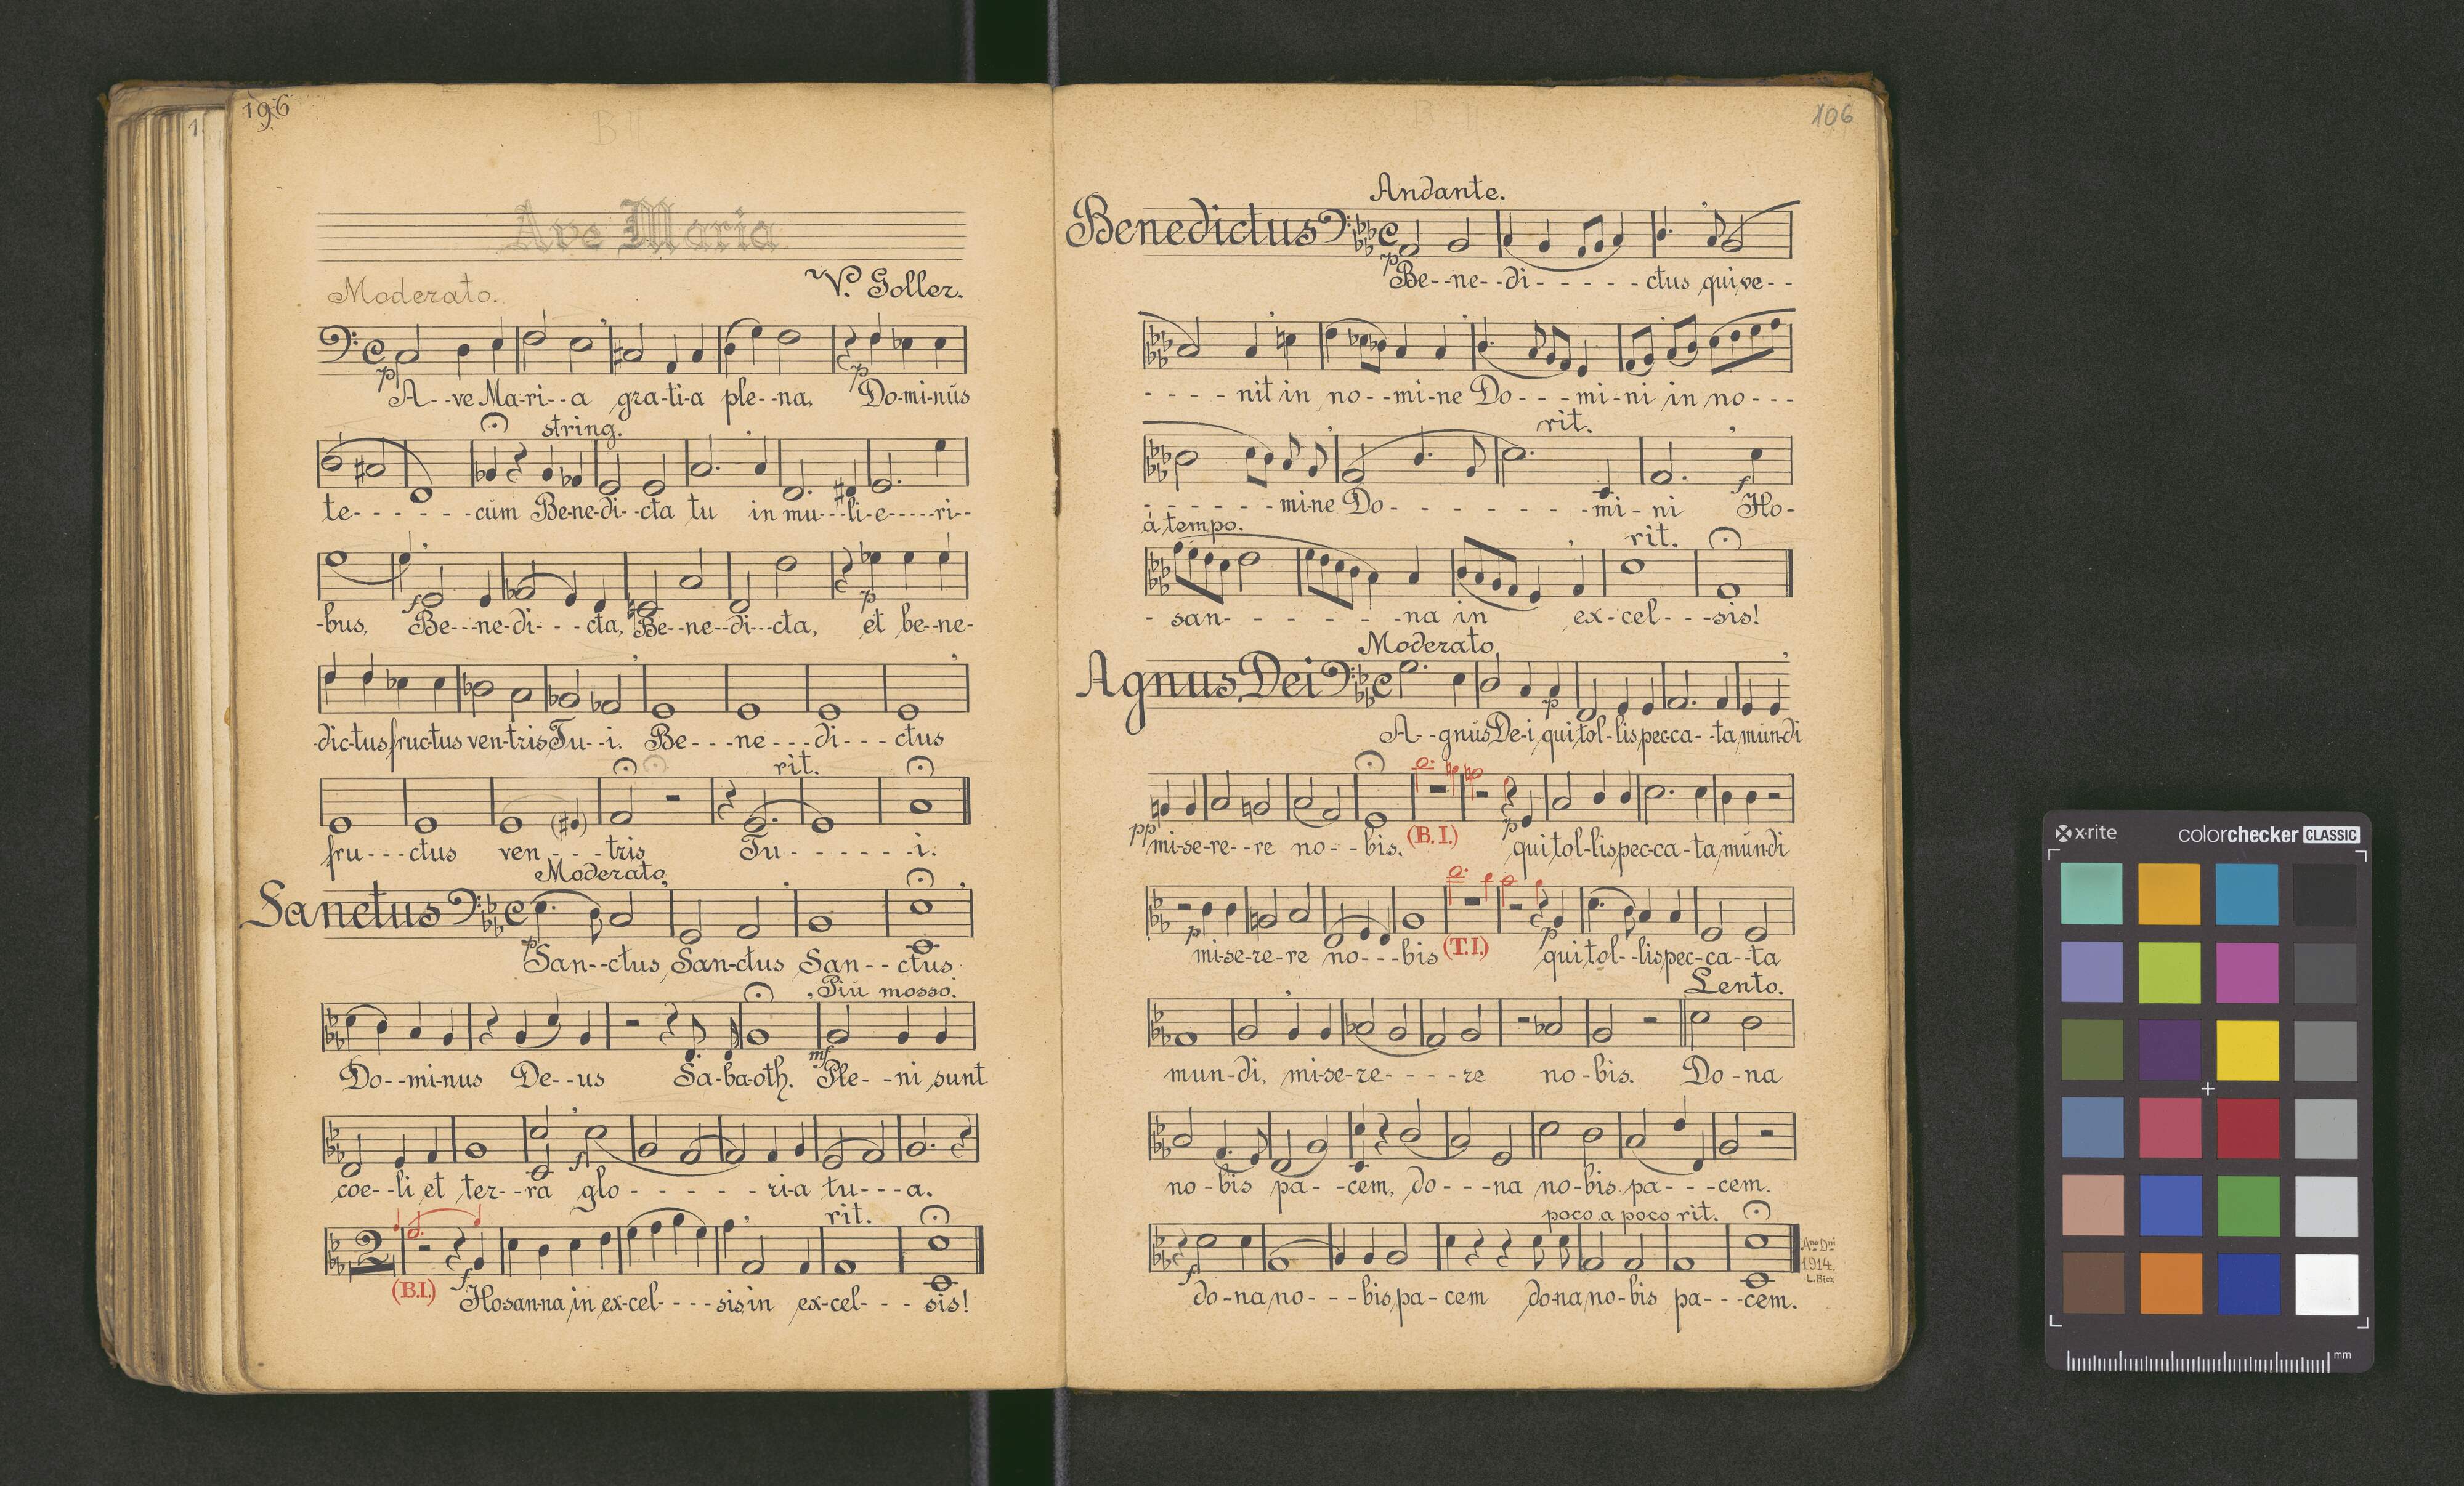 196
Ave Maria
Moderato.
V. Goller.
p p
A--ve Ma-ri--a gra-ti-a ple--na, Do-mi-nus
string.
te------cum Be-ne-di--cta tu in mu---li-e-----ri--
f p
-bus. Be---ne-di---cta, Be--ne--di---cta, et be--ne-
-dic-tus fruc-tus ven-tris Tu--i. Be----ne----di----ctus
rit.
fru---ctus ven---tris Tu------i.
Moderato,
Sanctus
p
San--ctus San-ctus San---ctus
Piu mosso.
mf
Do--mi-nus De--us Sa-ba-oth. Ple--ni sunt
f
coe--li et ter--ra glo------ri-a tu---a.
rit.
2
(B.I.) f
Ho-san-na in ex-cel----sis in ex-cel---sis!
106
Andante.
Benedictus
p
Be--ne--di-----ctus qui ve--
----nit in no--mi-ne Do---mi-ni in no---
rit.
f
------mi-ne Do--------mi-ni Ho-
a tempo.
rit.
-san-------na in ex-cel---sis!
Moderato,
Agnus Dei
p
A--gnus De-i qui tol-lis pec-ca--ta mun-di
pp (B.I.) p
mi-se-re--re no--bis. qui tol-lis pec-ca-ta mun-di
p (T.I.) p
mi-se-re-re no---bis qui tol--lis pec-ca--ta
Lento.
mun-di, mi-se-re----re no-bis. Do-na
no-bis pa--cem, do---na no-bis pa---cem.
poco a poco rit.
Ano Dni
1914.
L. Bicz
f
do-na no---bis pa-cem do-na no-bis pa---cem.
x-rite
colorchecker CLASSIC
mm